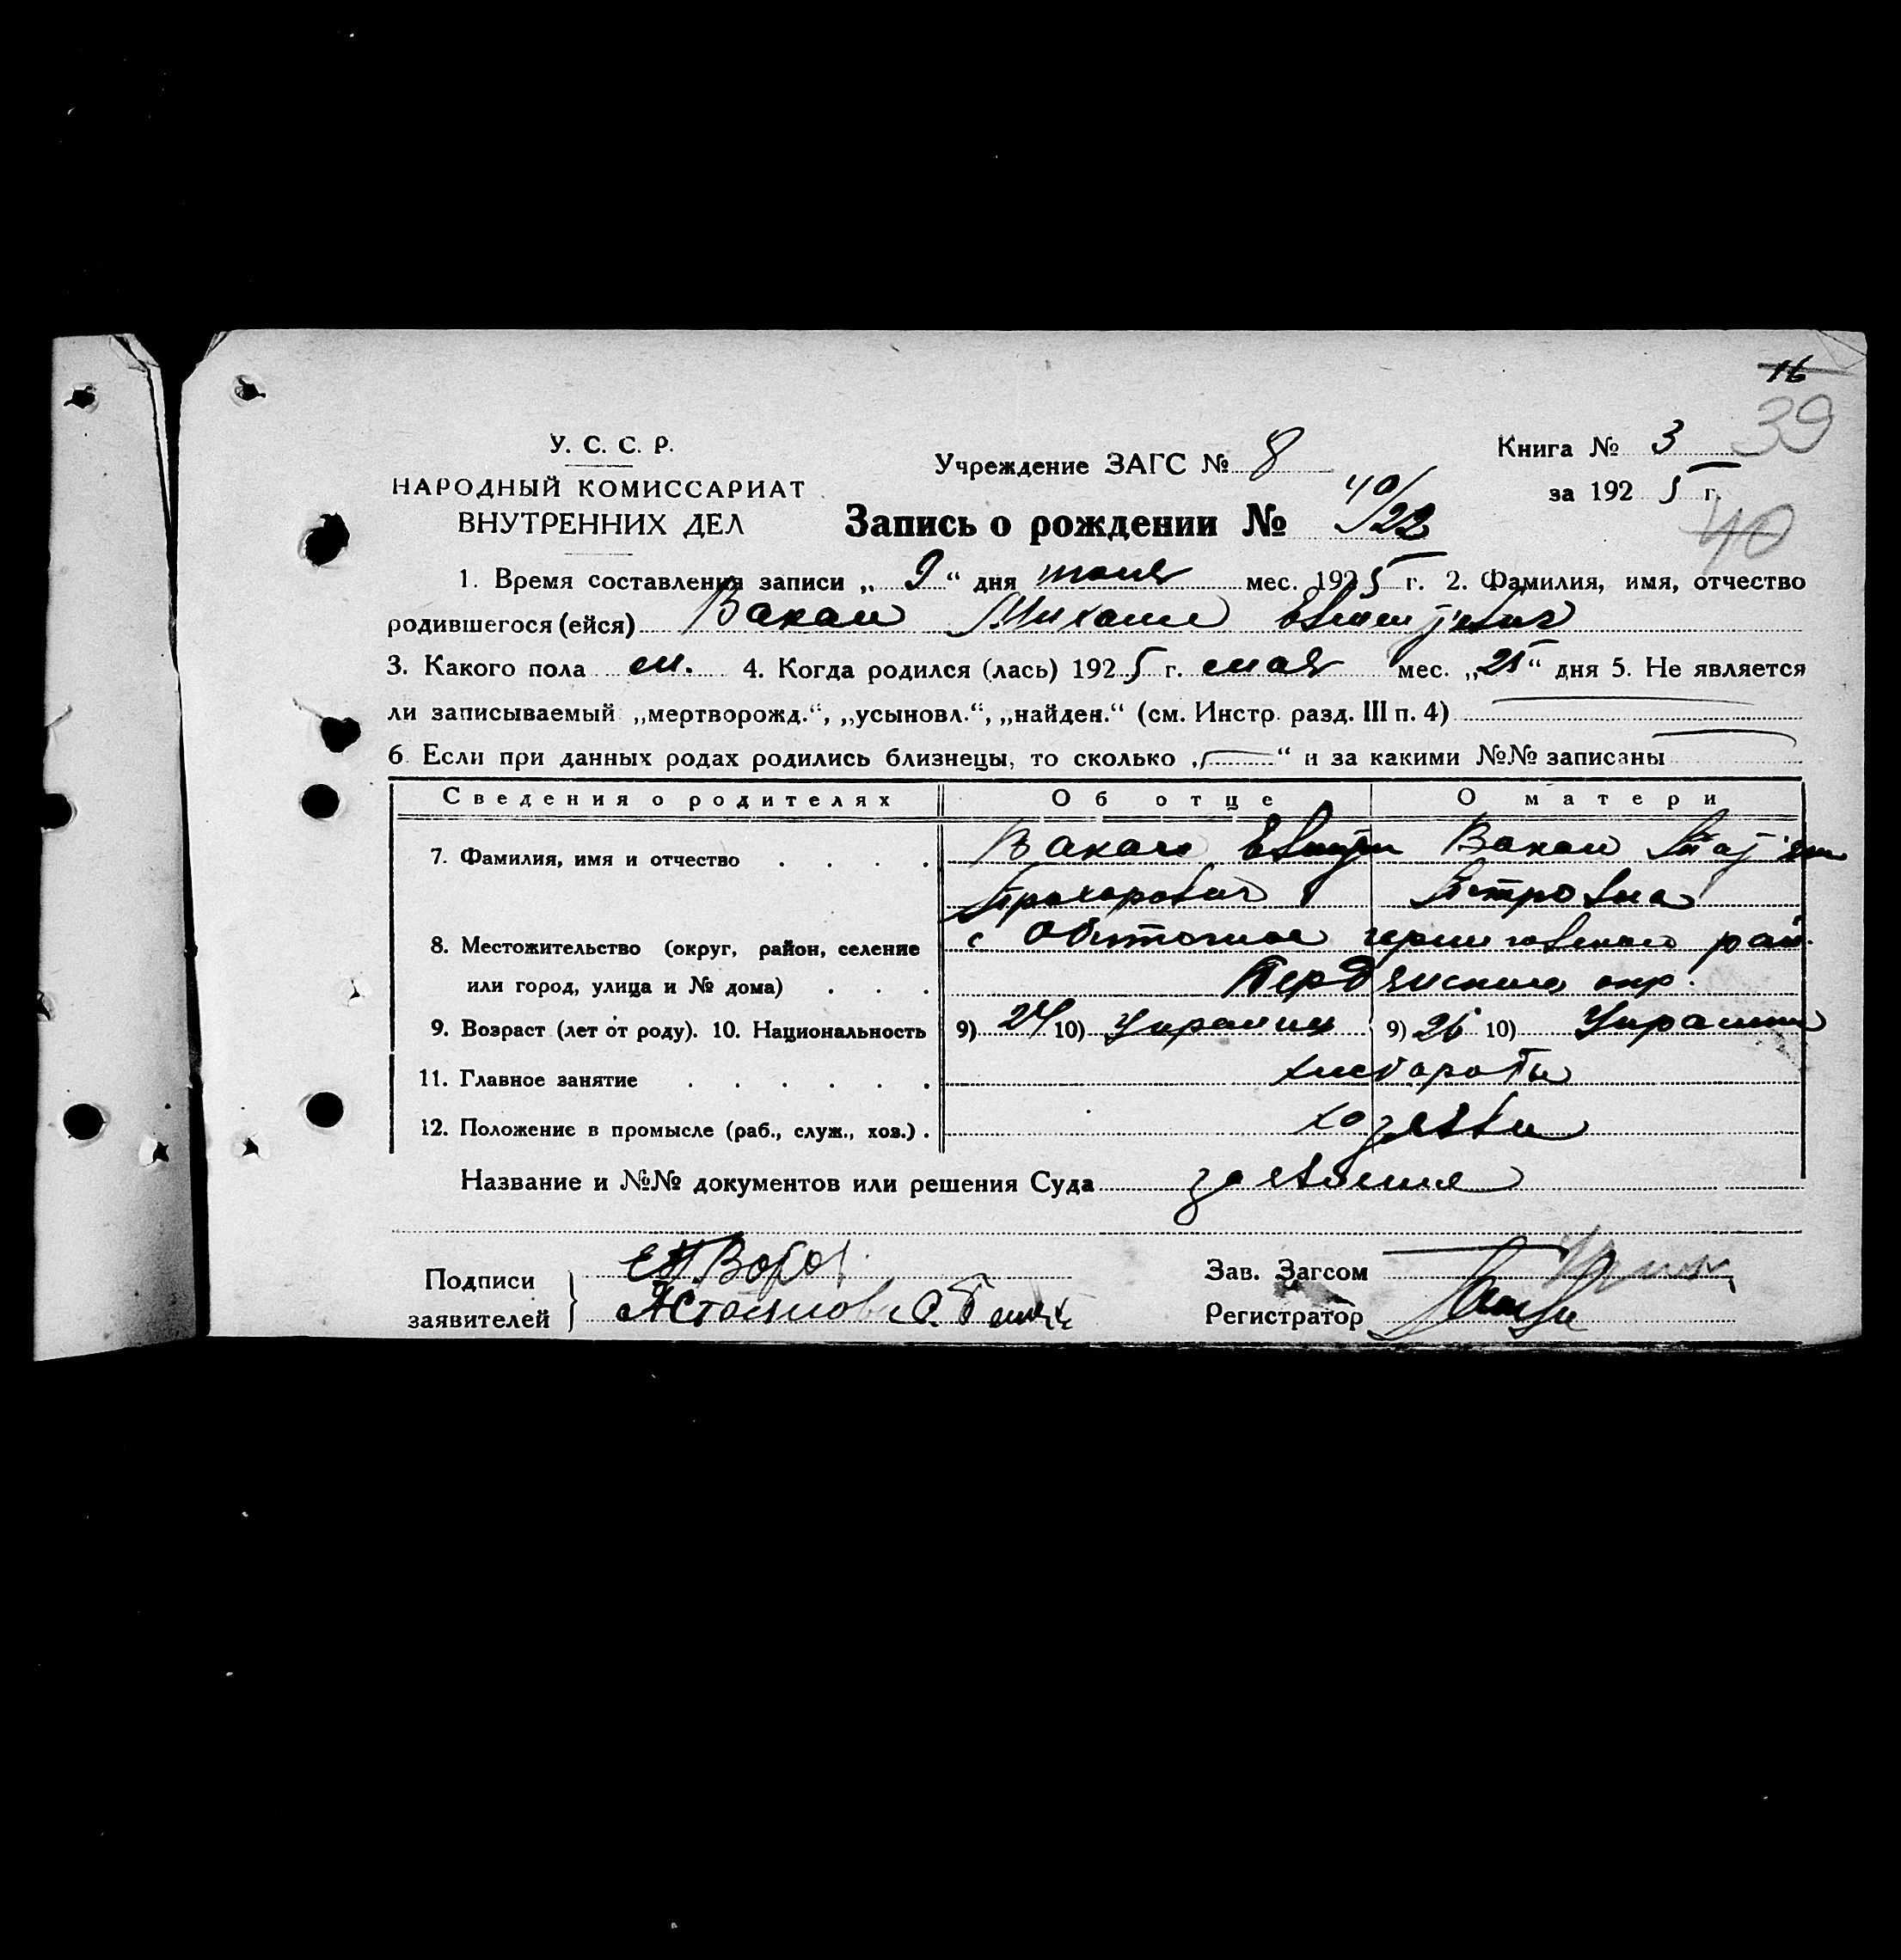 16
39
У. С. С. Р.
НАРОДНЫЙ КОМИССАРИАТ
ВНУТРЕННИХ ДЕЛ
Учреждение ЗАГС № 8
Книга № 3
за 1925 г.
40
Запись о рождении № 40/22
1. Время составления записи „ 9 “ дня июня мес. 1925 г. 2. Фамилия, имя, отчество
родившегося (ейся) Вакал Михаил
3. Какого пола м. 4. Когда родился (лась) 1925 г. мая мес. „25“ дня 5. Не является
ли записываемый „мертворожд.“, „усыновл.“, „найден.“ (см. Инстр. разд. III п. 4)
6. Если при данных родах родились близнецы, то сколько „ — “ и за какими №№ записаны
Сведения о родителях Об отце О матери
7. Фамилия, имя и отчество . . . . Вакал Вакал
Прохорович Петровна
8. Местожительство (округ, район, селение с Обиточное черниговского рай.
или город, улица и № дома) . . . Бердянского окр.
9. Возраст (лет от роду). 10. Национальность 9) 24 10) Украинц 9) 26 10) Украин
11. Главное занятие . . . . . . хлеборобы
12. Положение в промысле (раб., служ., хоз.) . хозяева
Название и №№ документов или решения Суда заявление
Подписи
заявителей
Зав. Загсом
Регистратор